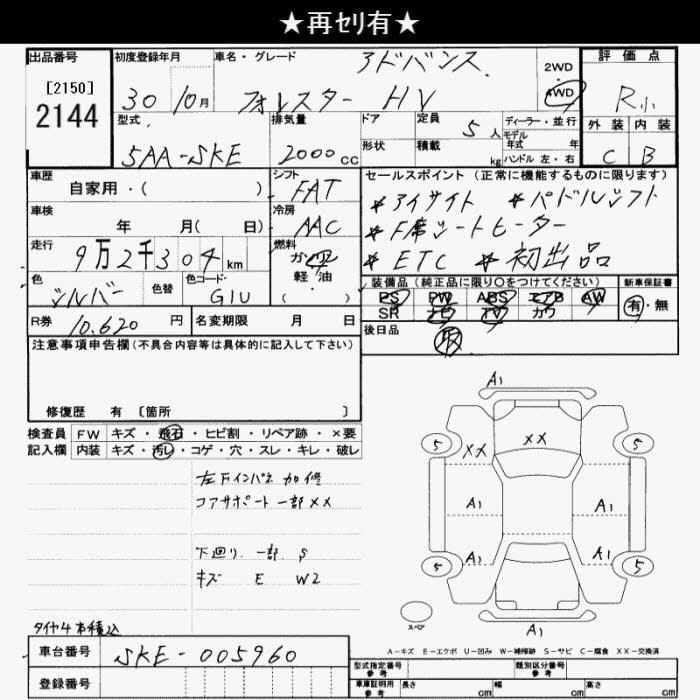 ★再セリ有★
出品番号
[2150]
2144
初度登録年月
30 10月
車名・グレード
アドバンス
フォレスター HV
2WD
4WD
評価点
R小
型式
5AA-SKE
排気量
2000cc
ドア
形状
定員
5人
積載
kg
ディーラー・並行
モデル
年式 年
ハンドル 左・右
外装 内装
C B
車歴
自家用・( )
シフト
FAT
セールスポイント(正常に機能するものに限ります)
*アイサイト *パドルシフト
*F席シートヒーター
*ETC *初出品
車検
年 月( 日)
冷房
AAC
走行
9万2千304km
燃料
ガソリン
軽・油
( )
色
シルバー
色替
色コード
G1U
装備品(純正品に限り○をつけてください)
PS PW ABS エアB AW
SR ナビ TV カワ
新車保証書
有・無
R券
10.620円
名変期限 月 日
後日品
取
注意事項申告欄(不具合内容等は具体的に記入して下さい)
修復歴 有〔箇所 〕
検査員 FW キズ・飛石・ヒビ割・リペア跡・×要
記入欄 内装 キズ・汚レ・コゲ・穴・スレ・キレ・破レ
左下インパネ 加修
コアサポート一部XX
下廻り 一部 S
キズ E W2
タイヤ4本積込
A1
5 XX XX 5
A1 A1
A1 A1
5 5
スペア
A1
A-キズ E-エクボ U-凹み W-補修跡 S-サビ C-腐食 XX-交換済
車台番号
SKE-005960
登録番号
型式指定番号
参考
類別区分番号
参考
車庫証明用
参考
長さ cm 幅 cm 高さ cm